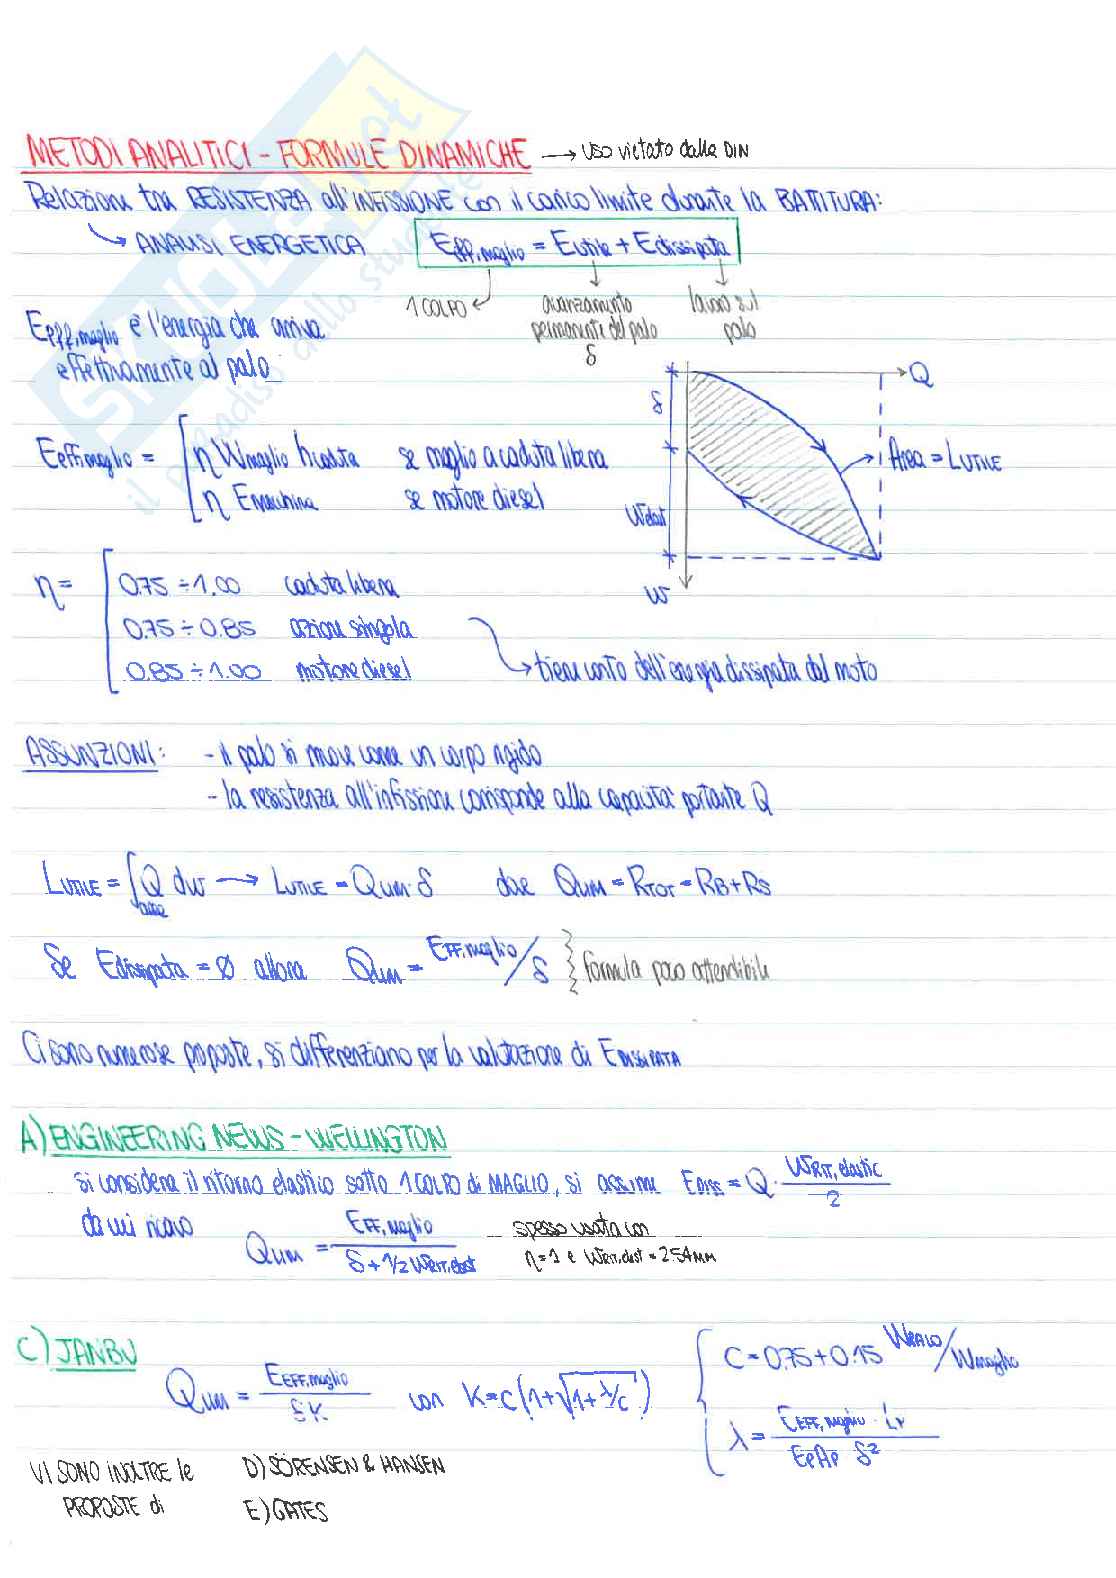 METODI ANALITICI - FORMULE DINAMICHE → USO vietato dalla DIN
Relazioni tra RESISTENZA all'INFISSIONE con il carico limite durante la BATTITURA:
↳ ANALISI ENERGETICA Eeff,maglio = Eutile + Edissipata
1 COLPO avanzamento permanente del palo δ lavoro sul palo
Eeff,maglio è l'energia che arriva
effettivamente al palo
Q
δ
Eeff.maglio = η Wmaglio hcaduta se maglio a caduta libera
η Emacchina se motore diesel
Area = LUTILE
Welast
w
η = 0.75 ÷ 1.00 caduta libera
0.75 ÷ 0.85 azione singola
0.85 ÷ 1.00 motore diesel
→ tiene conto dell'energia dissipata dal moto
ASSUNZIONI: - il palo si muove come un corpo rigido
- la resistenza all'infissione corrisponde alla capacità portante Q
LUTILE = ∫area Q dw → LUTILE = QLIM · δ dove QLIM = RTOT = RB + RS
Se Edissipata = Ø allora QLIM = EEFF,maglio / δ } formula poco attendibile
Ci sono numerose proposte, si differenziano per la valutazione di EDISSIPATA
A) ENGINEERING NEWS - WELLINGTON
si considera il ritorno elastico sotto 1 COLPO di MAGLIO, si assume EDISS = Q · WRIT,elastic / 2
da cui ricavo QLIM = EEFF,maglio / δ + 1/2 WRIT,elast spesso usata con
η = 1 e WRIT,elast = 2.54 MM
C) JANBU
QLIM = EEFF,maglio / δ K con K = C (1 + √1 + λ/C)
C = 0.75 + 0.15 WPALO / Wmaglio
λ = EEFF,maglio · LP / EP AP δ²
VI SONO INOLTRE le
PROPOSTE di
D) SÖRENSEN & HANSEN
E) GATES
SKUOLA.net
il paradiso dello studente